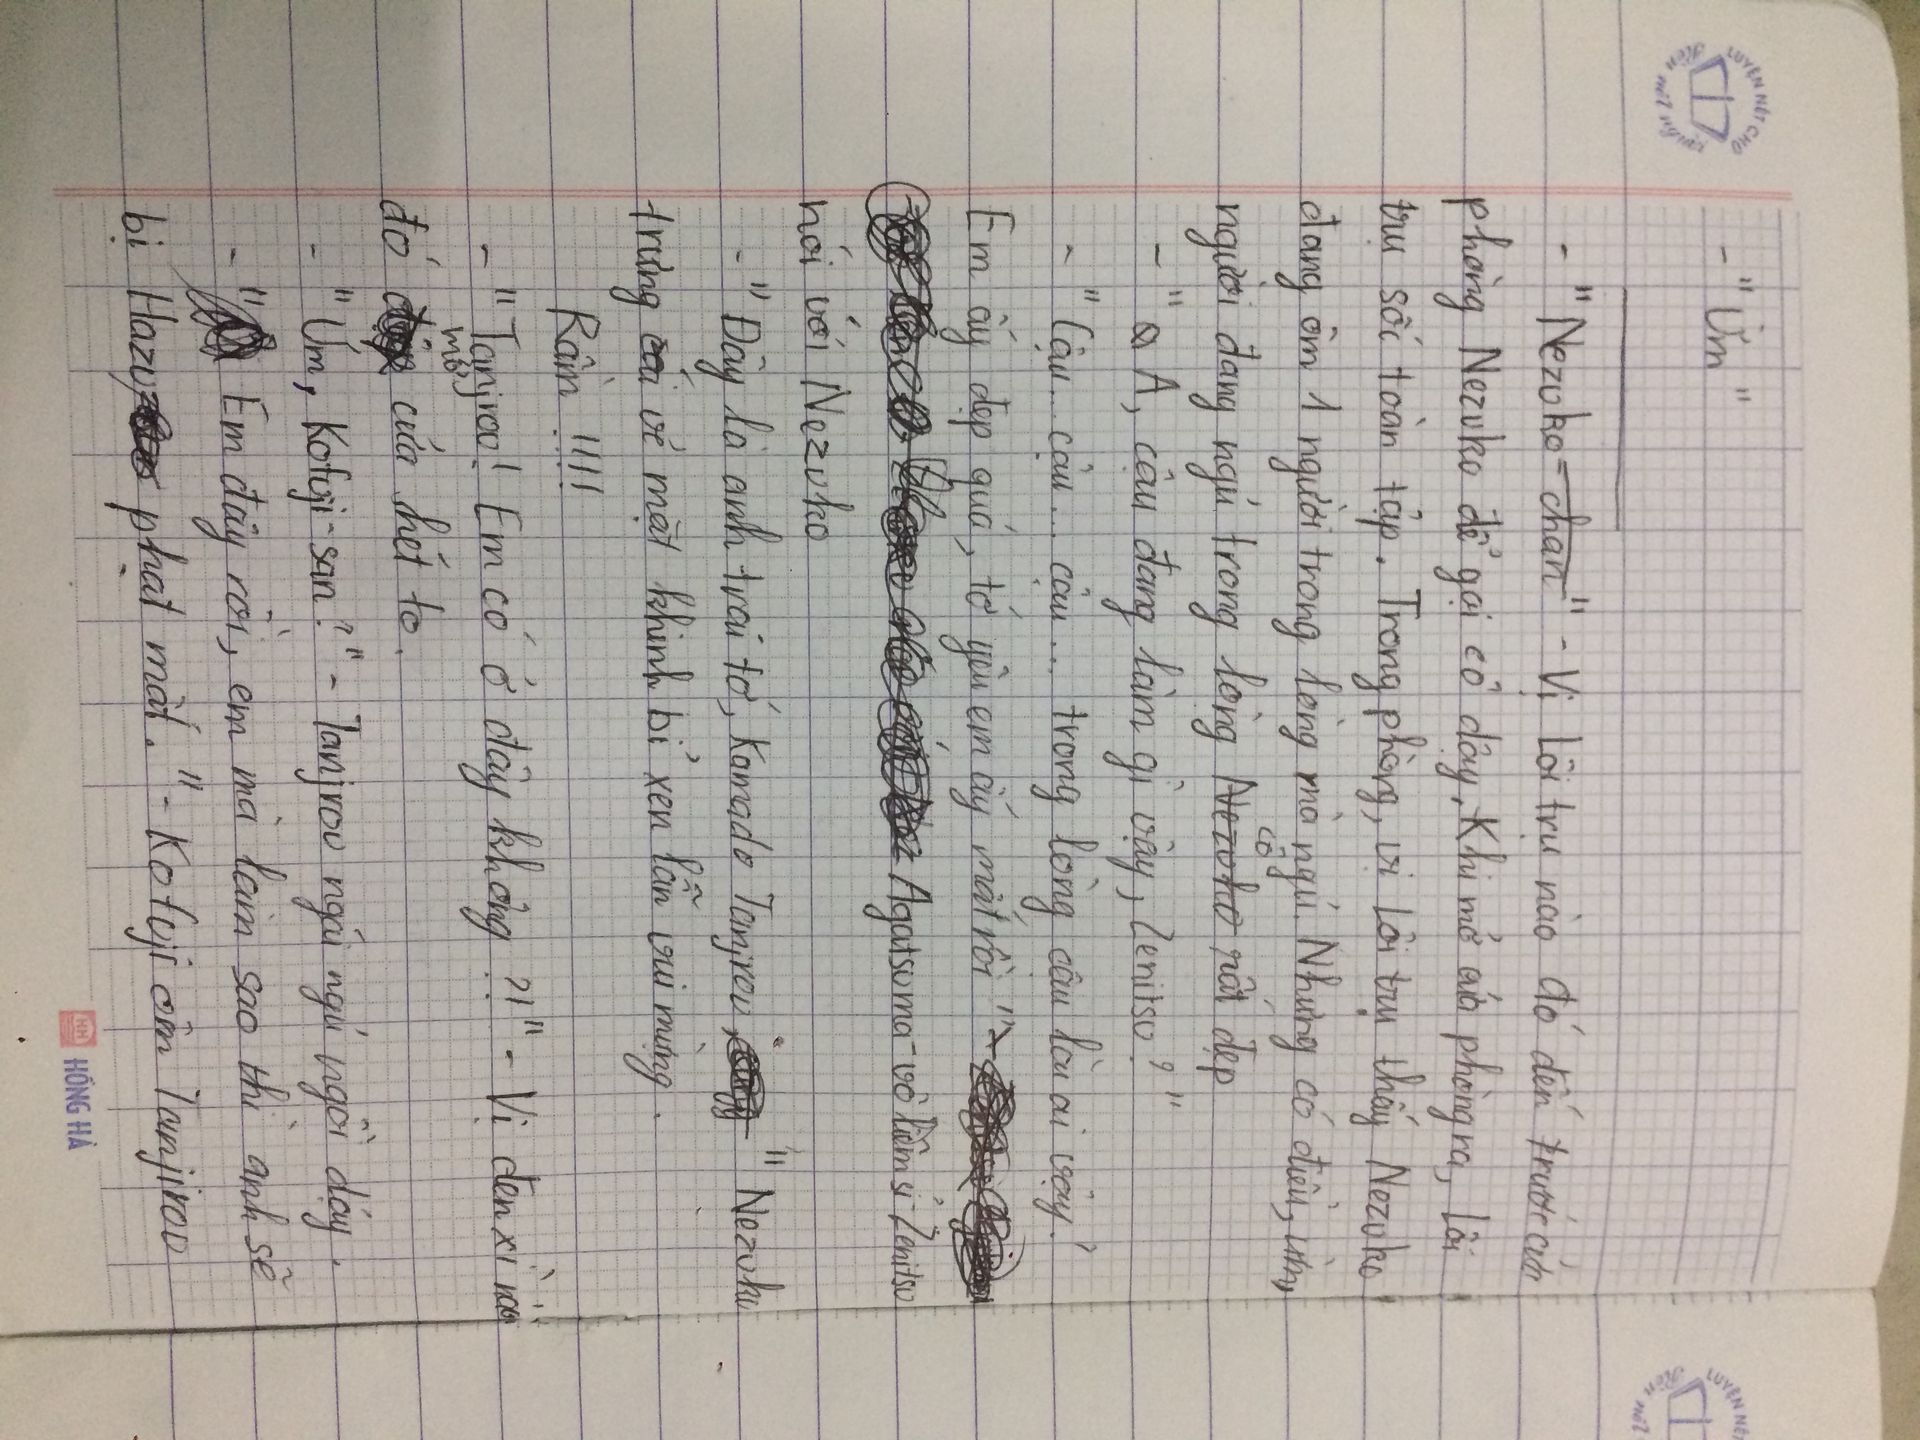 LUYỆN NÉT CHỮ
Rèn nết người
- "Ừm"
- "Nezuko-chan" - Vị Lôi trụ nào đó đến trước cửa
phòng Nezuko để gọi cô dậy. Khi mở cửa phòng ra, Lôi
trụ sốc toàn tập. Trong phòng, vị Lôi trụ thấy Nezuko
đang ôm 1 người trong lòng mà ngủ. Nhưng có điều,
người đang ngủ trong lòng Nezuko cô rất đẹp
- "A, cậu đang làm gì vậy, Zenitsu?"
- "Cậu... cậu... cậu... trong lòng cậu là ai vậy?
Em ấy đẹp quá, tớ yêu em ấy mất rồi" -
Agatsuma vô liêm sỉ Zenitsu
nói với Nezuko
- "Đây là anh trai tớ, Kamado Tanjirou." Nezuko
trưng cái vẻ mặt khinh bỉ xen lẫn vui mừng.
Rầm !!!!
- "Tanjirou! Em có ở đây không?!" - Vị đến xỉ nào
đó mở cửa hét to.
- "Ưm, Kofuji-san?" - Tanjirou ngái ngủ ngồi dậy.
- "Em đây rồi, em mà làm sao thì anh sẽ
bị Hazu phạt mất." - Kofuji ôm Tanjirou
HỒNG HÀ
LUYỆN NÉT
Rèn nết